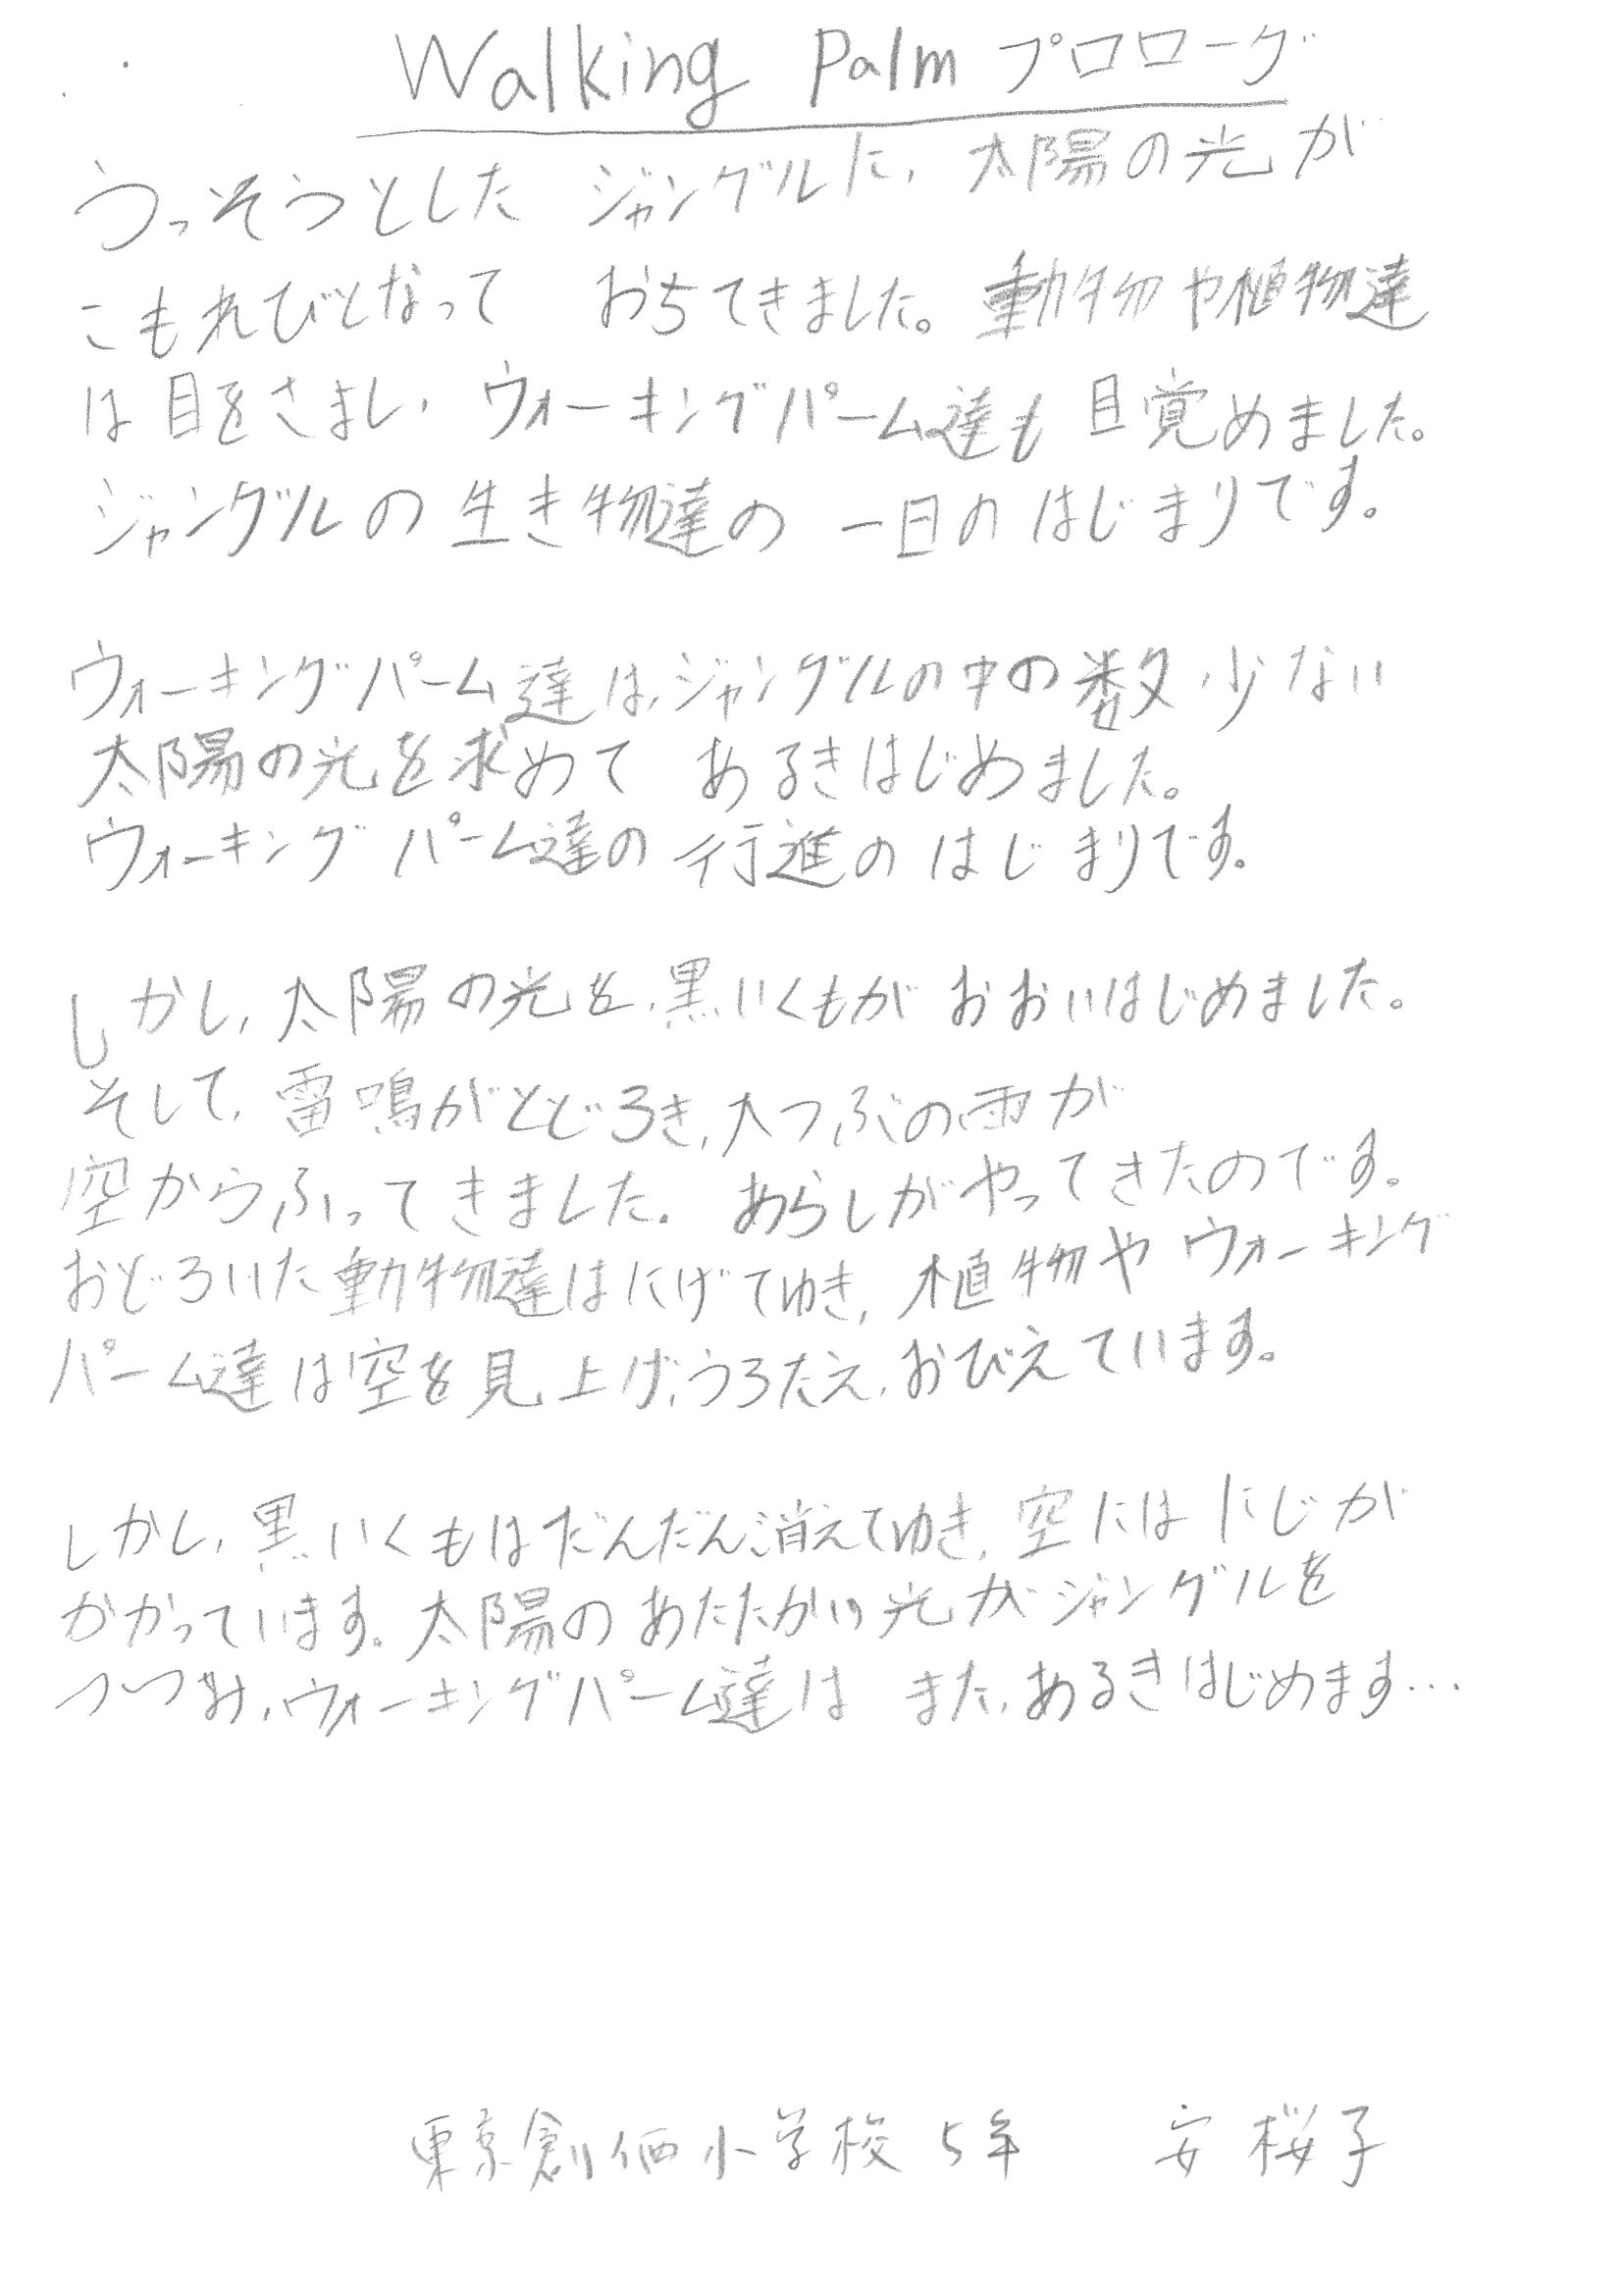 Walking Palm プロローグ
うっそうとした ジャングルに、太陽の光が
こもれびとなって おちてきました。動物や植物達
は目をさまし、ウォーキングパーム達も目覚めました。
ジャングルの生き物達の 一日のはじまりです。
ウォーキングパーム達は、ジャングルの中の数少ない
太陽の光を求めて あるきはじめました。
ウォーキングパーム達の行進のはじまりです。
しかし、太陽の光を、黒いくもがおおいはじめました。
そして、雷鳴がとどろき、大つぶの雨が
空からふってきました。あらしがやってきたのです。
おどろいた動物達はにげてゆき、植物やウォーキング
パーム達は空を見上げ、うろたえ、おびえています。
しかし、黒いくもはだんだん消えてゆき、空にはにじが
かかっています。太陽のあたたかい光がジャングルを
つつみ、ウォーキングパーム達は また、あるきはじめます…
東京創価小学校 5年 安 桜子